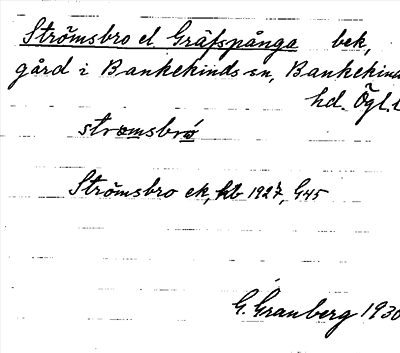 Strömsbro el Gräfspånga bek,
gård i Bankekinds sn, Bankekinds
hd. Ögl.
strømsbrǿ
Strömsbro ek, kb 1927, G45
G. Granberg 1930